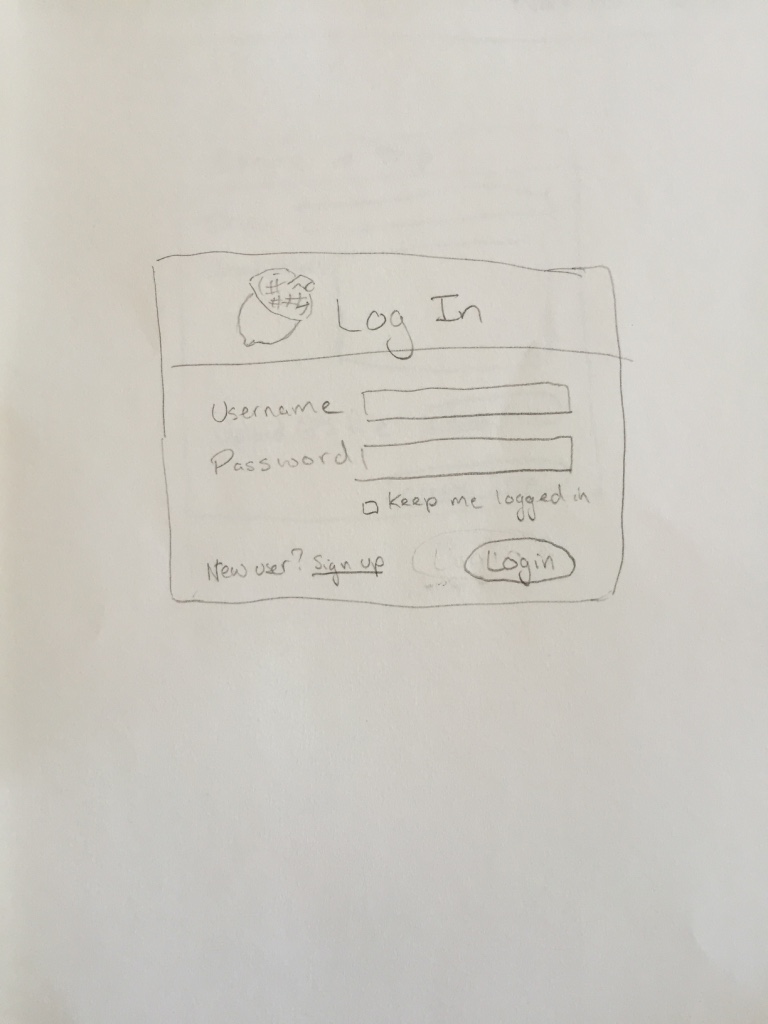 Log In
Username
Password
Keep me logged in
New user? Sign up
Login